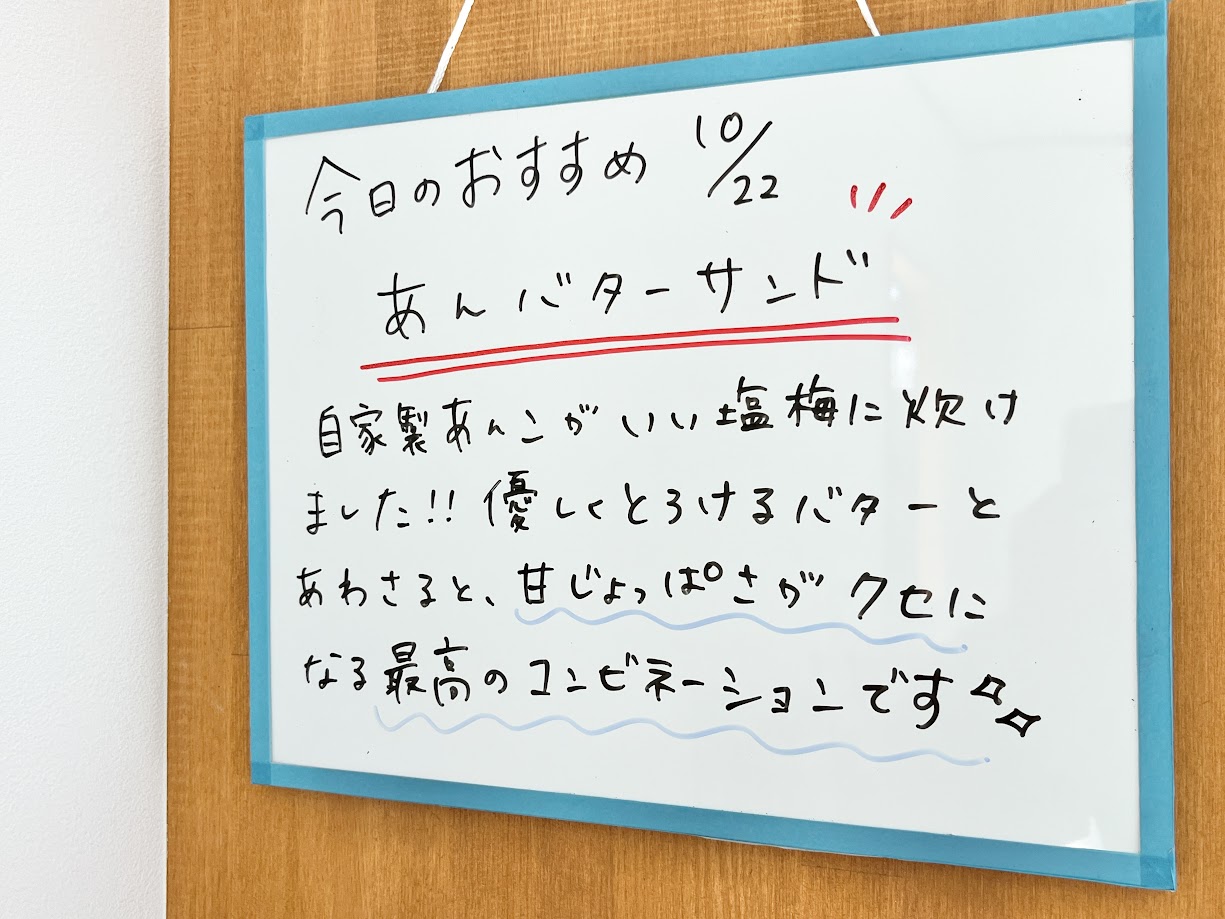 今日のおすすめ 10/22
あんバターサンド
自家製あんこがいい塩梅に炊け
ました!! 優しくとろけるバターと
あわさると、甘じょっぱさがクセに
なる最高のコンビネーションです